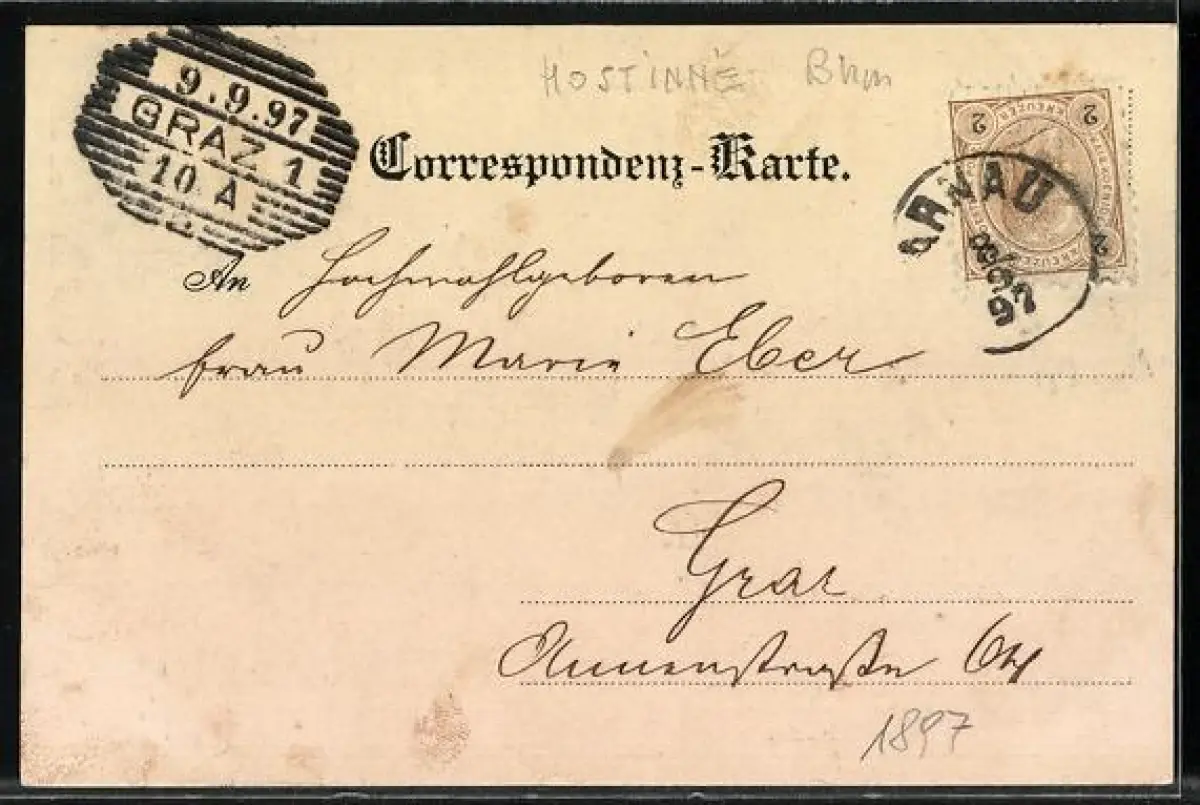 HOSTINNÉ
9.9.97
GRAZ 1
10 A
Correspondenz-Karte.
2 KREUZER 2
2
ARNAU
8/9
97
An Hochwohlgeboren
Frau Marie Eber
Graz
Annenstraße 64
1897